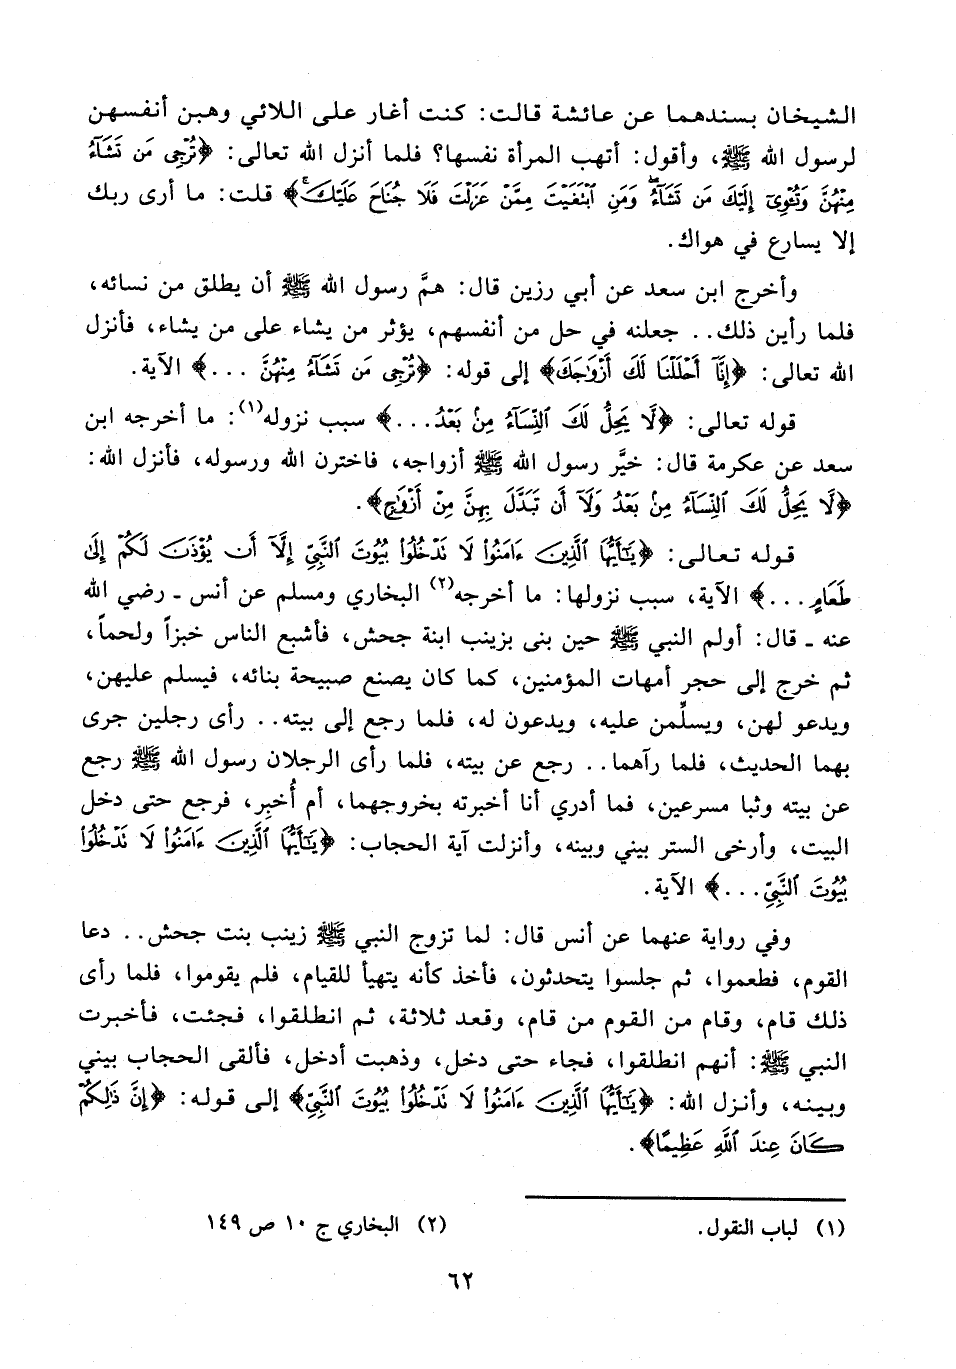 الشيخان بسندهما عن عائشة قالت: كنت أغار على اللائي وهبن أنفسهن
لرسول الله ﷺ، وأقول: أتهب المرأة نفسها؟ فلما أنزل الله تعالى: ﴿تُرْجِى مَن تَشَآءُ
مِنْهُنَّ وَتُـْٔوِىٓ إِلَيْكَ مَن تَشَآءُ ۖ وَمَنِ ٱبْتَغَيْتَ مِمَّنْ عَزَلْتَ فَلَا جُنَاحَ عَلَيْكَ ۚ﴾ قلت: ما أرى ربك
إلا يسارع في هواك.
وأخرج ابن سعد عن أبي رزين قال: همَّ رسول الله ﷺ أن يطلق من نسائه،
فلما رأين ذلك.. جعلنه في حل من أنفسهم، يؤثر من يشاء على من يشاء، فأنزل
الله تعالى: ﴿إِنَّآ أَحْلَلْنَا لَكَ أَزْوَٰجَكَ﴾ إلى قوله: ﴿تُرْجِى مَن تَشَآءُ مِنْهُنَّ ...﴾ الآية.
قوله تعالى: ﴿لَّا يَحِلُّ لَكَ ٱلنِّسَآءُ مِنۢ بَعْدُ...﴾ سبب نزوله(١): ما أخرجه ابن
سعد عن عكرمة قال: خيَّر رسول الله ﷺ أزواجه، فاخترن الله ورسوله، فأنزل الله:
﴿لَّا يَحِلُّ لَكَ ٱلنِّسَآءُ مِنۢ بَعْدُ وَلَآ أَن تَبَدَّلَ بِهِنَّ مِنْ أَزْوَٰجٍ﴾.
قوله تعالى: ﴿يَٰٓأَيُّهَا ٱلَّذِينَ ءَامَنُوا۟ لَا تَدْخُلُوا۟ بُيُوتَ ٱلنَّبِىِّ إِلَّآ أَن يُؤْذَنَ لَكُمْ إِلَىٰ
طَعَامٍ...﴾ الآية، سبب نزولها: ما أخرجه(٢) البخاري ومسلم عن أنس ـ رضي الله
عنه ـ قال: أولم النبي ﷺ حين بنى بزينب ابنة جحش، فأشبع الناس خبزاً ولحماً،
ثم خرج إلى حجر أمهات المؤمنين، كما كان يصنع صبيحة بنائه، فيسلم عليهن،
ويدعو لهن، ويسلِّمن عليه، ويدعون له، فلما رجع إلى بيته.. رأى رجلين جرى
بهما الحديث، فلما رآهما.. رجع عن بيته، فلما رأى الرجلان رسول الله ﷺ رجع
عن بيته وثبا مسرعين، فما أدري أنا أخبرته بخروجهما، أم أُخبِر، فرجع حتى دخل
البيت، وأرخى الستر بيني وبينه، وأنزلت آية الحجاب: ﴿يَٰٓأَيُّهَا ٱلَّذِينَ ءَامَنُوا۟ لَا تَدْخُلُوا۟
بُيُوتَ ٱلنَّبِىِّ...﴾ الآية.
وفي رواية عنهما عن أنس قال: لما تزوج النبي ﷺ زينب بنت جحش.. دعا
القوم، فطعموا، ثم جلسوا يتحدثون، فأخذ كأنه يتهيأ للقيام، فلم يقوموا، فلما رأى
ذلك قام، وقام من القوم من قام، وقعد ثلاثة، ثم انطلقوا، فجئت، فأخبرت
النبي ﷺ: أنهم انطلقوا، فجاء حتى دخل، وذهبت أدخل، فألقى الحجاب بيني
وبينه، وأنزل الله: ﴿يَٰٓأَيُّهَا ٱلَّذِينَ ءَامَنُوا۟ لَا تَدْخُلُوا۟ بُيُوتَ ٱلنَّبِىِّ﴾ إلى قوله: ﴿إِنَّ ذَٰلِكُمْ
كَانَ عِندَ ٱللَّهِ عَظِيمًا﴾.
(١) لباب النقول. (٢) البخاري ج ١٠ ص ١٤٩
٦٢